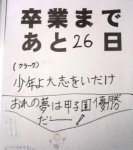 卒業まで
あと26日
(クラーク)
少年よ大志をいだけ
おれの夢は甲子園優勝
だー!!